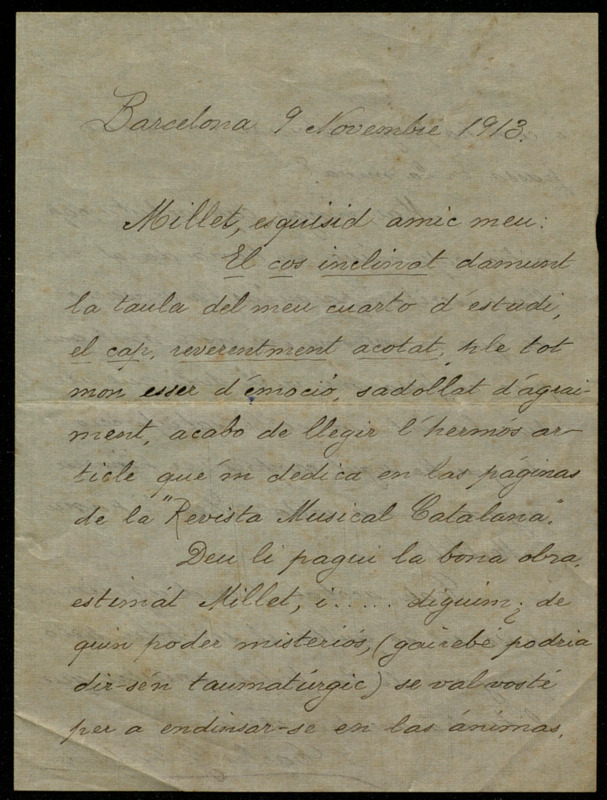 Barcelona 9 Novembre 1913.
Millet, esquisid amic meu:
El cos inclinat damunt
la taula del meu cuarto d'estudi,
el cap, reverentment acotat, ple tot
mon esser d'émoció, sadollat d'agrai-
ment, acabo de llegir l'hermós ar-
ticle que'm dedica en las páginas
de la "Revista Musical Catalana".
Deu li pagui la bona obra,
estimát Millet, i..... diguim; de
quin poder misteriós, (gairebé podria
dir-sén taumatúrgic) se val vosté
per a endinsar-se en las ánimas,